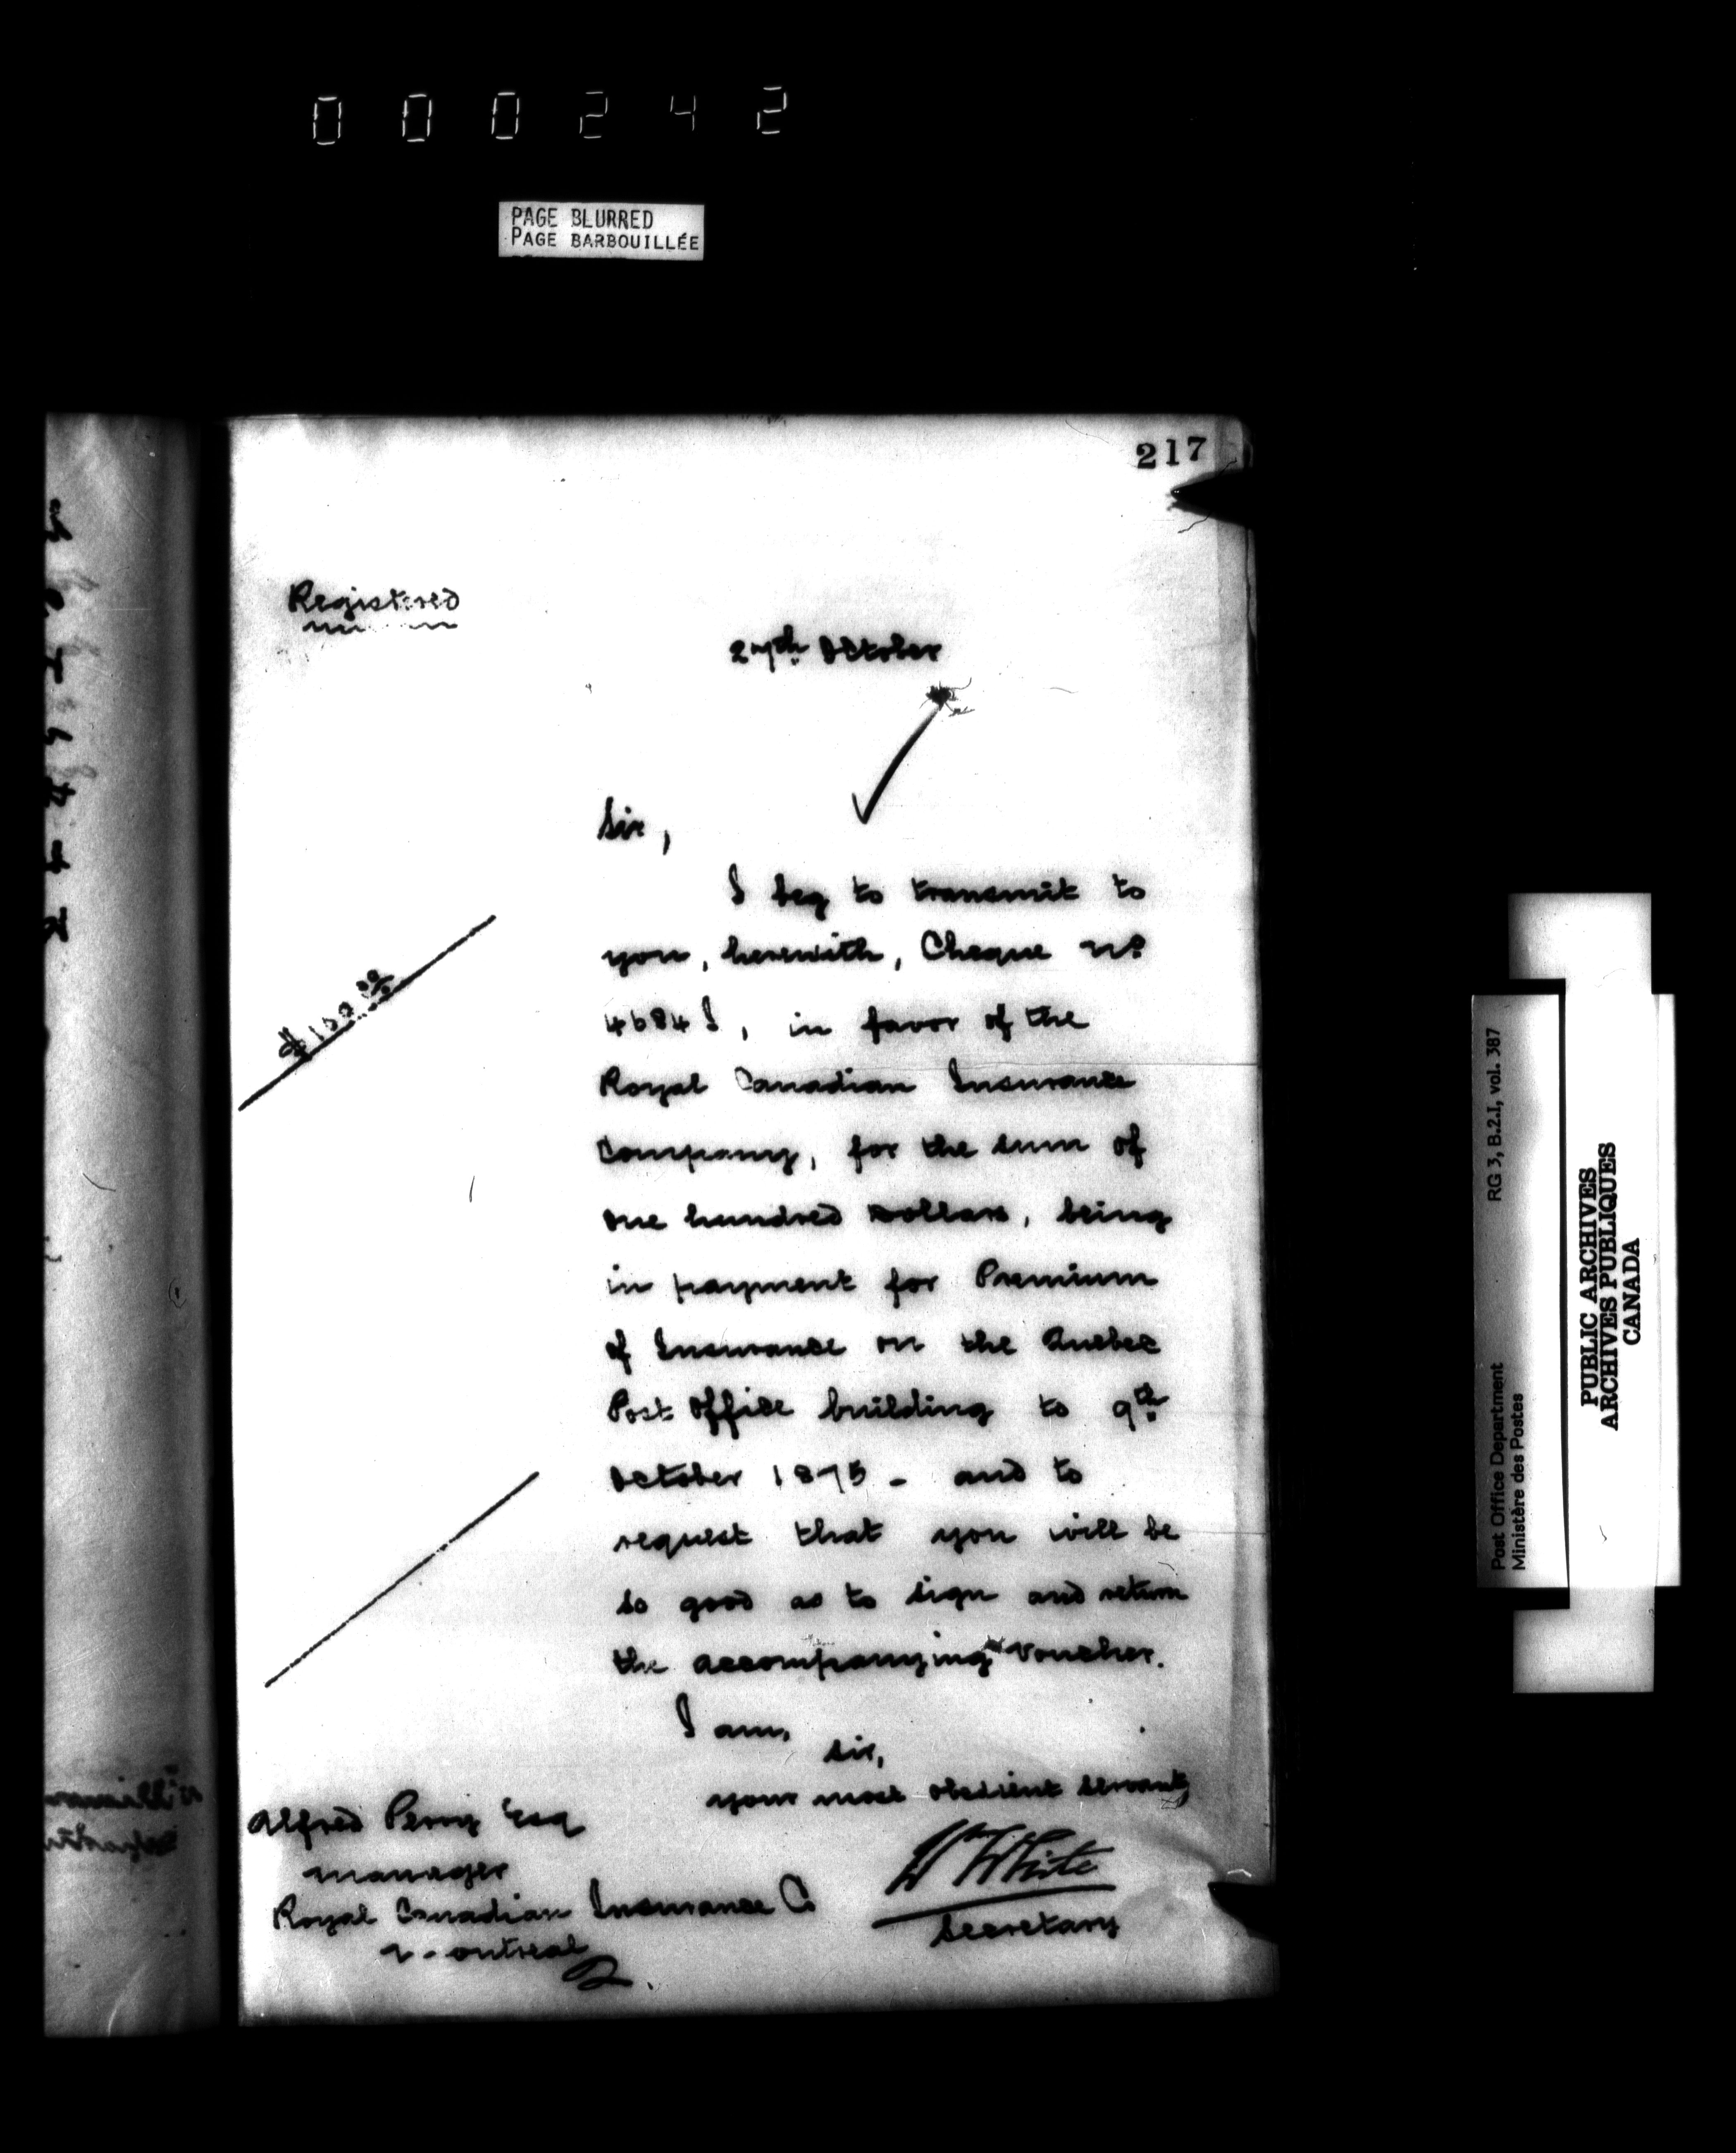 000242
PAGE BLURRED
PAGE BARBOUILLÉE
217
Registered
27th October
Sir,
I beg to transmit to
you, herewith, Cheque No
in favor of the
Royal Canadian Insurance
Company, for the sum of
one hundred dollars, being
in payment for Premium
of Insurance on the Quebec
Post Office building to 9th
October 1875 - and to
request that you will be
so good as to sign and return
the accompanying voucher.
I am,
Sir,
your most obedient servant
$100.00
Alfred Perry Esq
Manager
Royal Canadian Insurance Co
Montreal
W White
Secretary
RG 3, B.2.I, vol. 387
Post Office Department
Ministère des Postes
PUBLIC ARCHIVES
ARCHIVES PUBLIQUES
CANADA